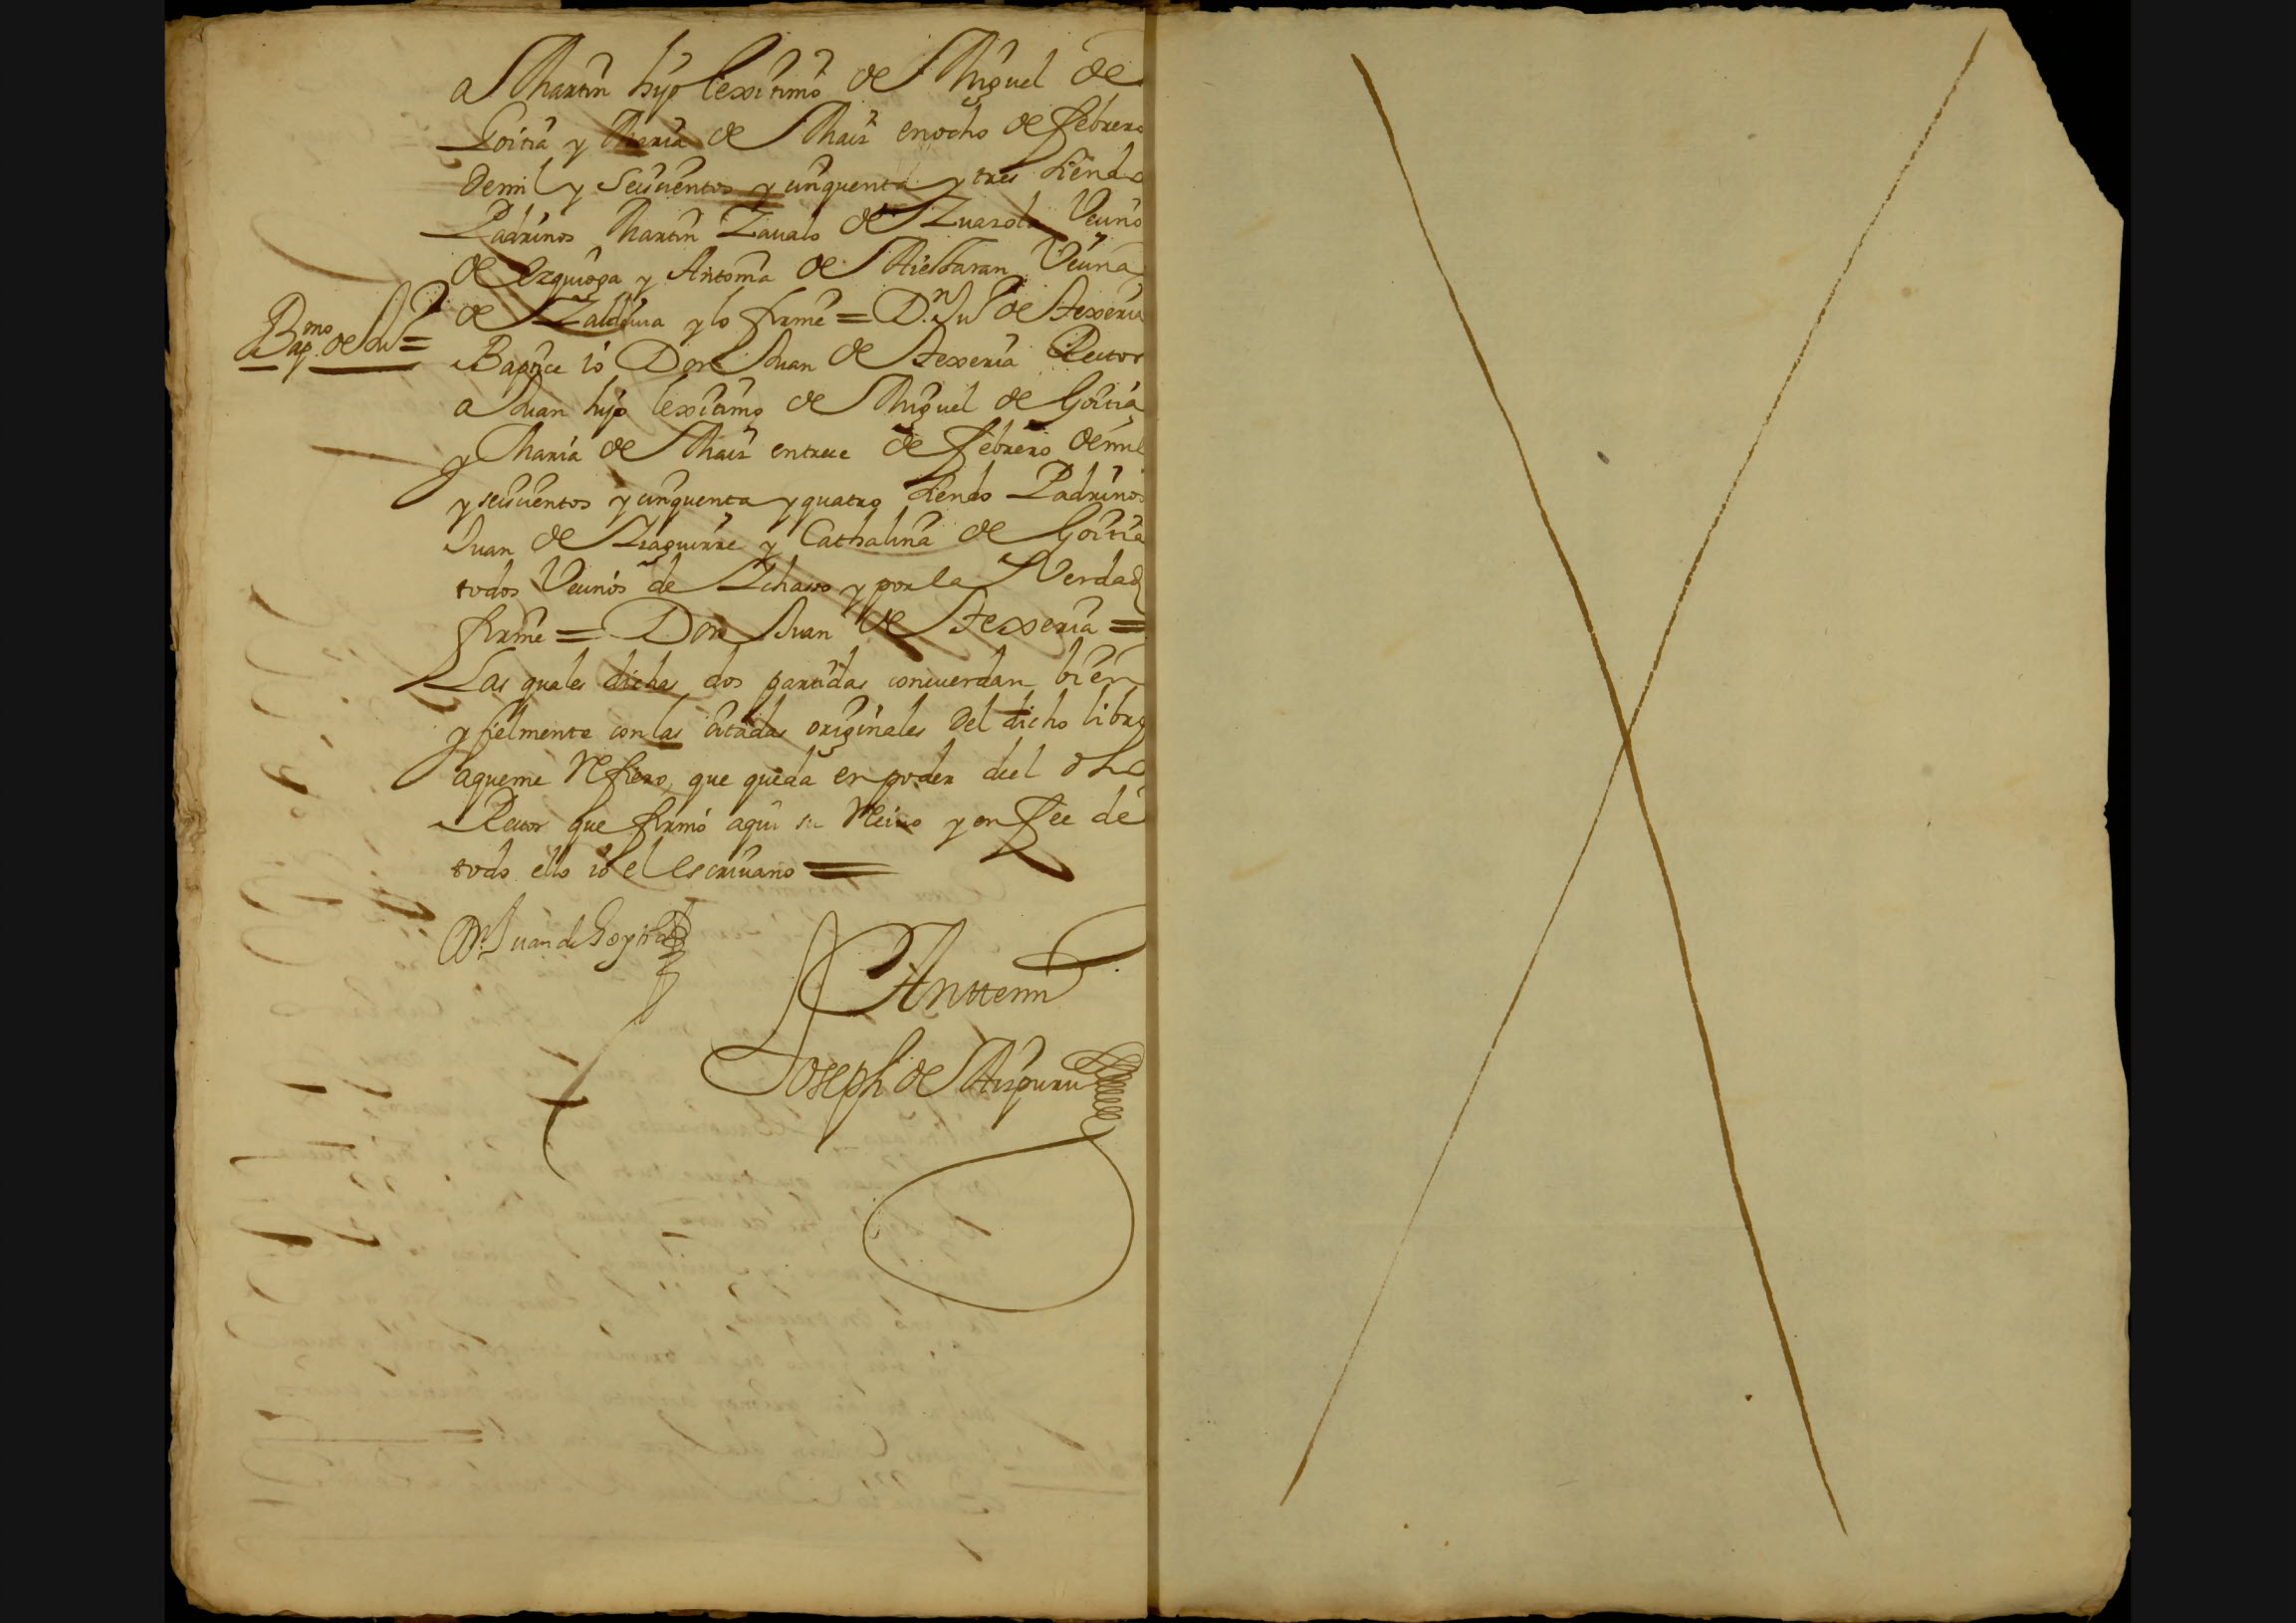 a Martin hijo lexitimo de Miguel de
Goitia y Maria de Maiz en ocho de febrero
de mil y seiscientos y cinquenta y tres siendo
Padrinos Martin Zavalo de Zuazola Vecino
de Ezquioga y Antonia de Aiestaran Vecina
de Zaldivia y lo firme = D.n Ju.o de Atexeria
Bap.mo de Ju.o =
Baptice io Don Juan de Atexeria Rector
a Juan hijo lexitimo de Miguel de Goitia
y Maria de Maiz en trece de febrero de mil
y seiscientos y cinquenta y quatro siendo Padrinos
Juan de Izaguirre y Cathalina de Goitia
todos Vecinos de Ichaso y por la Verdad
firme = Don Juan de Atexeria =
Las quales dichas dos partidas concuerdan bien
y fielmente con las citadas originales del dicho libro
a que me refiero, que queda en poder del dho
Rector que firmó aqui su Recivo y en fee de
todo ello io el escrivano =
D.n Juan de Goytia
Anttemi
Joseph de Aizpuru